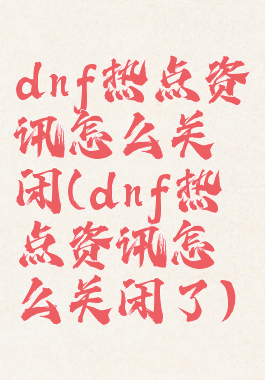 dnf热点资
讯怎么关
闭(dnf热
点资讯怎
么关闭了)